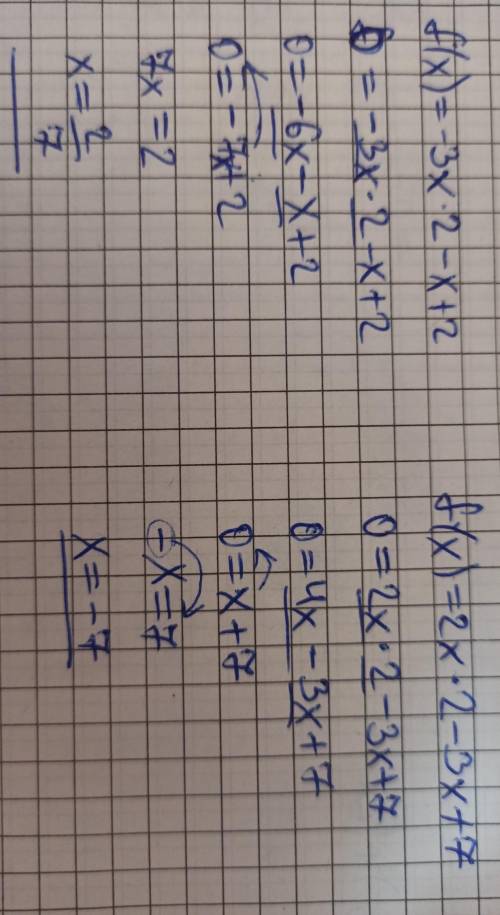 f(x) = -3x · 2 - x + 2
0 = -3x · 2 - x + 2
0 = -6x - x + 2
0 = -7x + 2
7x = 2
x = 2/7
f(x) = 2x · 2 - 3x + 7
0 = 2x · 2 - 3x + 7
0 = 4x - 3x + 7
0 = x + 7
-x = 7
x = -7